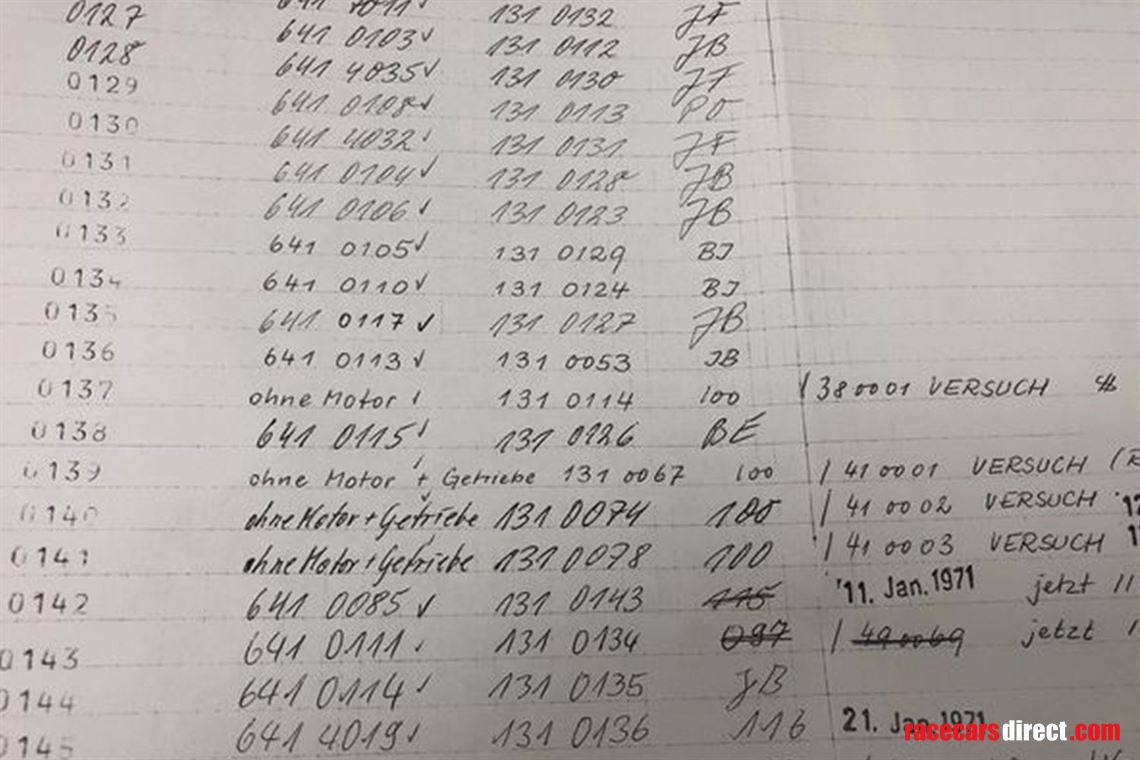 131 0132 JF
0127 641 0103 ✓ 131 0112 JB
0128 641 4035 ✓ 131 0130 JF
0129 641 0108 ✓ 131 0113 PO
0130 641 4032 ✓ 131 0131 JF
0131 641 0104 ✓ 131 0128 JB
0132 641 0106 ✓ 131 0123 JB
0133 641 0105 ✓ 131 0129 BJ
0134 641 0110 ✓ 131 0124 BJ
0135 641 0117 ✓ 131 0127 JB
0136 641 0113 ✓ 131 0053 JB
0137 ohne Motor ✓ 131 0114 100 / 38 0001 VERSUCH
0138 641 0115 ✓ 131 0126 BE
0139 ohne Motor + Getriebe 131 0067 100 / 41 0001 VERSUCH (R
0140 ohne Motor + Getriebe 131 0074 100 / 41 0002 VERSUCH
0141 ohne Motor + Getriebe 131 0078 100 / 41 0003 VERSUCH
0142 641 0085 ✓ 131 0143 115 '11. Jan. 1971 jetzt 11
0143 641 0111 ✓ 131 0134 097 / 49 0069 jetzt 1
0144 641 0114 ✓ 131 0135 JB
0145 641 4019 ✓ 131 0136 116 21. Jan. 1971
racecarsdirect.com